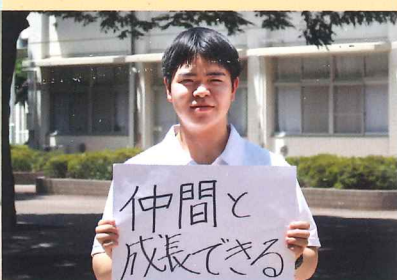 仲間と
成長できる